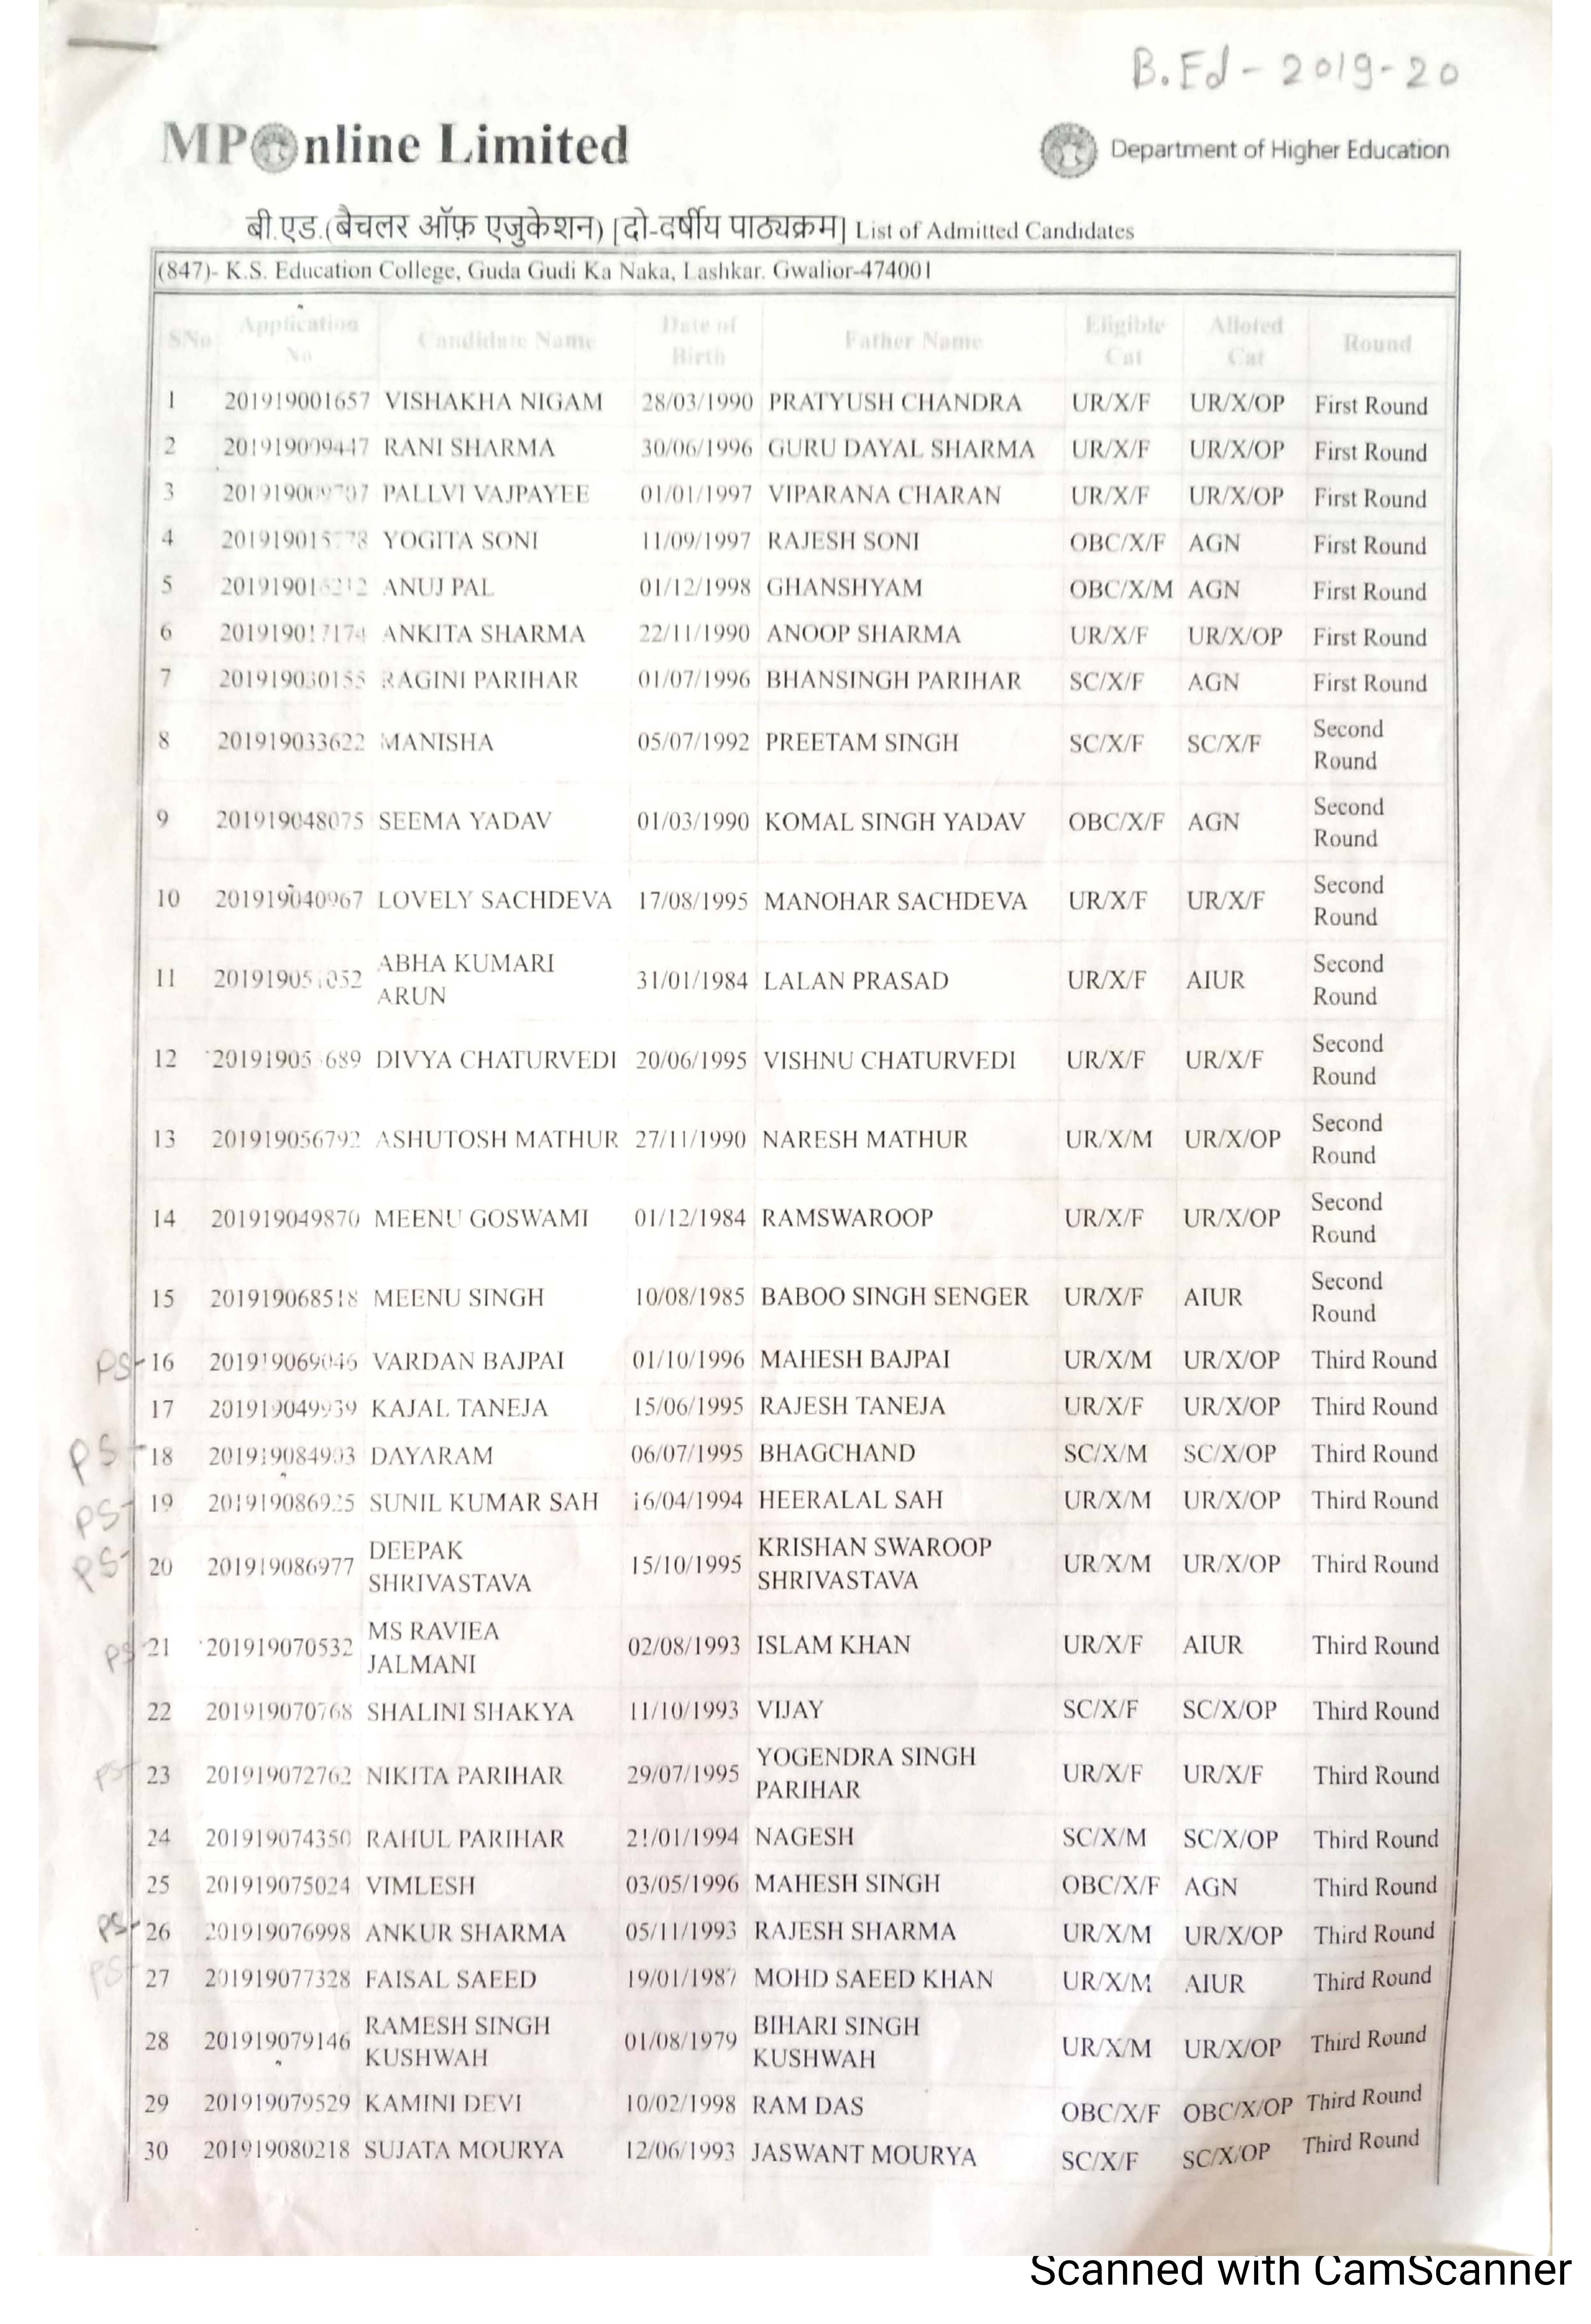 B.Ed - 2019-20
MPOnline Limited
Department of Higher Education
बी.एड.(बैचलर ऑफ़ एजुकेशन) [दो-वर्षीय पाठ्यक्रम] List of Admitted Candidates
(847)- K.S. Education College, Guda Gudi Ka Naka, Lashkar. Gwalior-474001
SNo Application No Candidate Name Date of Birth Father Name Eligible Cat Alloted Cat Round
1 201919001657 VISHAKHA NIGAM 28/03/1990 PRATYUSH CHANDRA UR/X/F UR/X/OP First Round
2 201919009447 RANI SHARMA 30/06/1996 GURU DAYAL SHARMA UR/X/F UR/X/OP First Round
3 PALLVI VAJPAYEE 01/01/1997 VIPARANA CHARAN UR/X/F UR/X/OP First Round
4 YOGITA SONI 11/09/1997 RAJESH SONI OBC/X/F AGN First Round
5 ANUJ PAL 01/12/1998 GHANSHYAM OBC/X/M AGN First Round
6 201919017174 ANKITA SHARMA 22/11/1990 ANOOP SHARMA UR/X/F UR/X/OP First Round
7 201919030155 RAGINI PARIHAR 01/07/1996 BHANSINGH PARIHAR SC/X/F AGN First Round
8 201919033622 MANISHA 05/07/1992 PREETAM SINGH SC/X/F SC/X/F Second Round
9 201919048075 SEEMA YADAV 01/03/1990 KOMAL SINGH YADAV OBC/X/F AGN Second Round
10 201919040967 LOVELY SACHDEVA 17/08/1995 MANOHAR SACHDEVA UR/X/F UR/X/F Second Round
11 ABHA KUMARI ARUN 31/01/1984 LALAN PRASAD UR/X/F AIUR Second Round
12 DIVYA CHATURVEDI 20/06/1995 VISHNU CHATURVEDI UR/X/F UR/X/F Second Round
13 201919056792 ASHUTOSH MATHUR 27/11/1990 NARESH MATHUR UR/X/M UR/X/OP Second Round
14 201919049870 MEENU GOSWAMI 01/12/1984 RAMSWAROOP UR/X/F UR/X/OP Second Round
15 201919068518 MEENU SINGH 10/08/1985 BABOO SINGH SENGER UR/X/F AIUR Second Round
PS 16 201919069046 VARDAN BAJPAI 01/10/1996 MAHESH BAJPAI UR/X/M UR/X/OP Third Round
17 201919049939 KAJAL TANEJA 15/06/1995 RAJESH TANEJA UR/X/F UR/X/OP Third Round
PS 18 201919084903 DAYARAM 06/07/1995 BHAGCHAND SC/X/M SC/X/OP Third Round
PS 19 201919086925 SUNIL KUMAR SAH 16/04/1994 HEERALAL SAH UR/X/M UR/X/OP Third Round
PS 20 201919086977 DEEPAK SHRIVASTAVA 15/10/1995 KRISHAN SWAROOP SHRIVASTAVA UR/X/M UR/X/OP Third Round
PS 21 201919070532 MS RAVIEA JALMANI 02/08/1993 ISLAM KHAN UR/X/F AIUR Third Round
22 201919070768 SHALINI SHAKYA 11/10/1993 VIJAY SC/X/F SC/X/OP Third Round
PS 23 201919072762 NIKITA PARIHAR 29/07/1995 YOGENDRA SINGH PARIHAR UR/X/F UR/X/F Third Round
24 201919074350 RAHUL PARIHAR 21/01/1994 NAGESH SC/X/M SC/X/OP Third Round
25 201919075024 VIMLESH 03/05/1996 MAHESH SINGH OBC/X/F AGN Third Round
PS 26 201919076998 ANKUR SHARMA 05/11/1993 RAJESH SHARMA UR/X/M UR/X/OP Third Round
PS 27 201919077328 FAISAL SAEED 19/01/1987 MOHD SAEED KHAN UR/X/M AIUR Third Round
28 201919079146 RAMESH SINGH KUSHWAH 01/08/1979 BIHARI SINGH KUSHWAH UR/X/M UR/X/OP Third Round
29 201919079529 KAMINI DEVI 10/02/1998 RAM DAS OBC/X/F OBC/X/OP Third Round
30 201919080218 SUJATA MOURYA 12/06/1993 JASWANT MOURYA SC/X/F SC/X/OP Third Round
Scanned with CamScanner